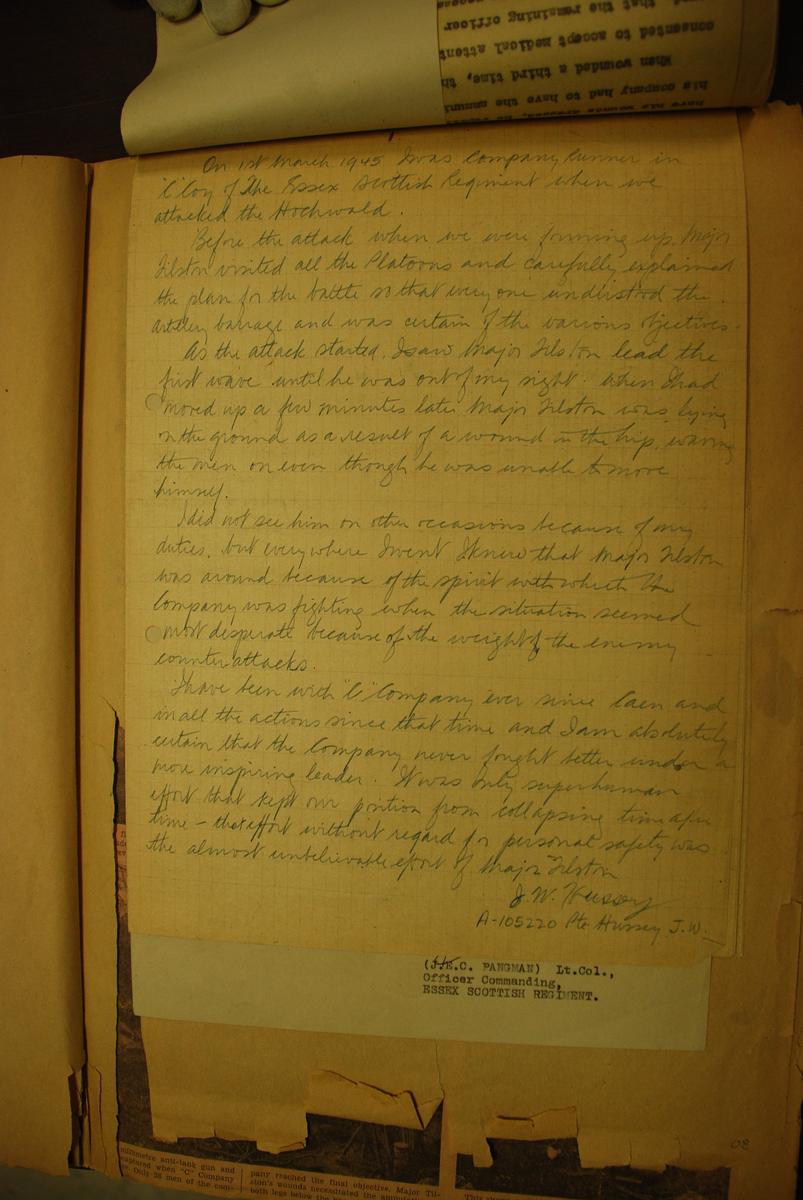 have his wounds dressed, he
his company had to have the ammuni
When wounded a third time, th
consented to accept medical attent
that the remaining officer
On 1st March 1945 I was Company Runner in
"C" Coy of The Essex Scottish Regiment when we
attacked the Hochwald.
Before the attack when we were forming up, Major
Tilston visited all the Platoons and carefully explained
the plan for the battle so that everyone understood the
artillery barrage and was certain of the various objectives.
As the attack started, I saw Major Tilston lead the
first wave until he was out of my sight. When I had
moved up a few minutes later Major Tilston was lying
on the ground as a result of a wound in the hip, waving
the men on even though he was unable to move
himself.
I did not see him on other occasions because of my
duties, but everywhere I went I knew that Major Tilston
was around because of the spirit with which the
Company was fighting when the situation seemed
most desperate because of the weight of the enemy
counter attacks.
I have been with "C" Company ever since Caen and
in all the actions since that time and I am absolutely
certain that the Company never fought better under a
more inspiring leader. It was only superhuman
effort that kept our position from collapsing time after
time - that effort without regard for personal safety was
the almost unbelievable effort of Major Tilston
J.W. Hussey
A-105220 Pte Hussey J.W.
PANGMAN) Lt.Col.,
Officer Commanding,
ESSEX SCOTTISH REGIMENT.
30
millimetre anti-tank gun and
captured when "C" Company
Only 26 men of the com-
pany reached the final objective. Major Til-
ston's wounds necessitated the
both legs below the
This